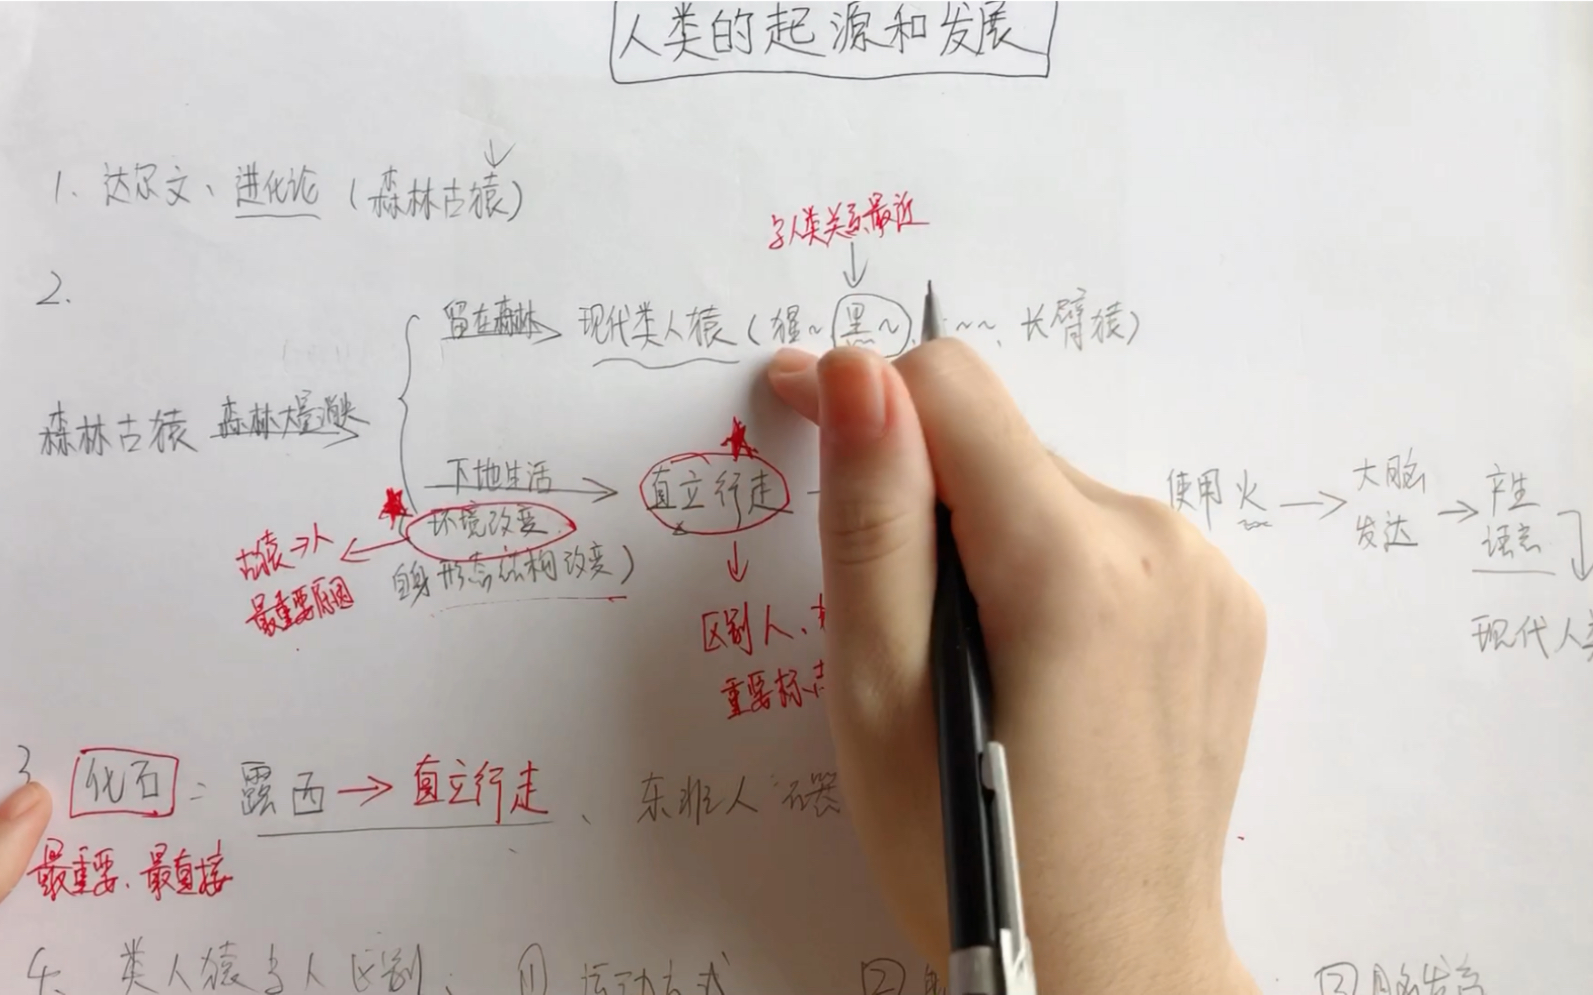 人类的起源和发展
1. 达尔文、进化论（森林古猿）
与人类关系最近
2.
留在森林 现代类人猿（猩~ 黑~ ~~、长臂猿）
森林古猿 森林大量消失
下地生活 直立行走
使用火 → 大脑发达 → 产生语言
环境改变
古猿→人
自身形态结构改变）
最重要原因
区别人、
现代人类
重要标志
3 化石： 露西 → 直立行走、东非人 石器
最重要、最直接
4. 类人猿与人区别： ① 运动方式 ② ③ 脑发育